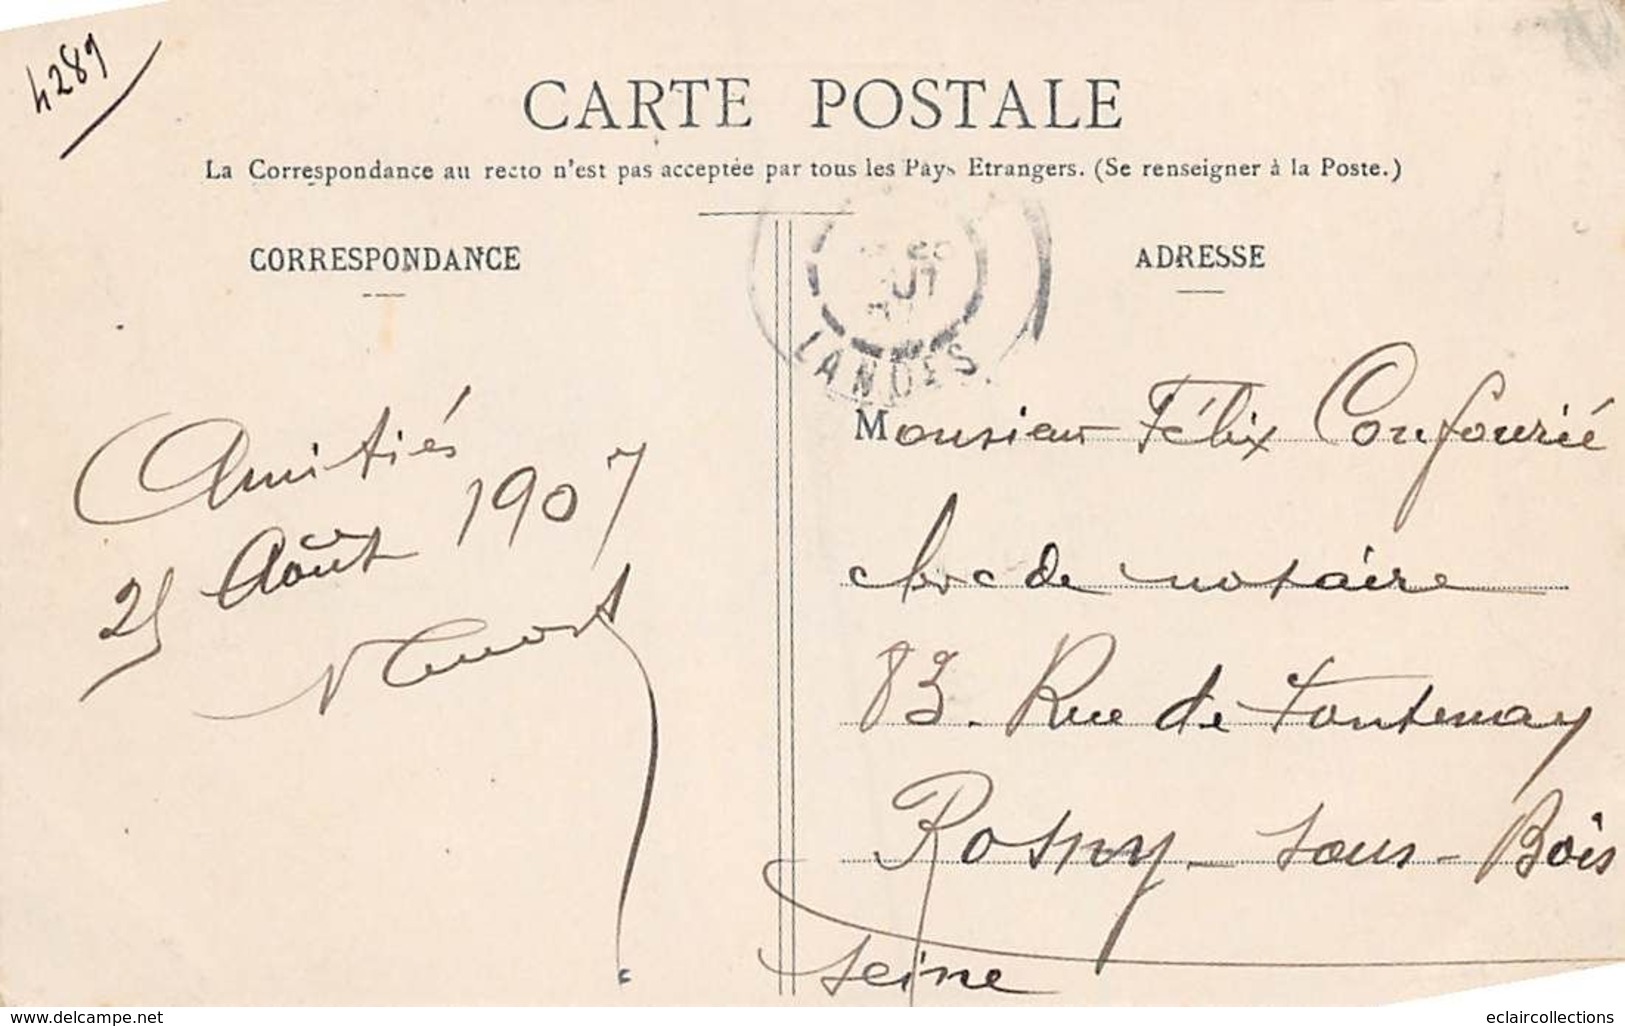 4289
CARTE POSTALE
La Correspondance au recto n'est pas acceptée par tous les Pays Etrangers. (Se renseigner à la Poste.)
CORRESPONDANCE
Amitiés
25 Août 1907
ADRESSE
LANDES
Monsieur Félix Confourié
clerc de notaire
83. Rue de Fontenay
Rosny-sous-Bois
Seine
www.delcampe.net
eclaircollections